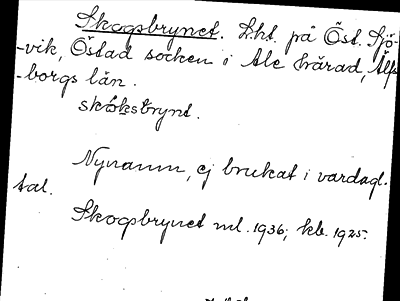 Skogsbrynet. Lht. på Öst. Sjö-
-vik, Östad socken i Ale härad, Älfs-
-borgs län.
skóksbrynt.
Nynamn, ej brukat i vardagl.
tal.
Skogsbrynet ml. 1936; kb. 1925.